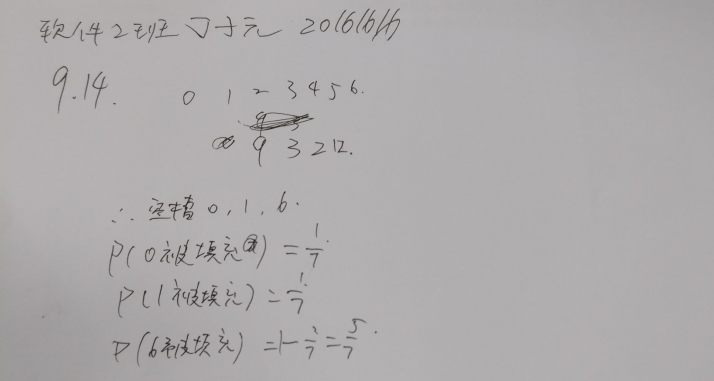 软件2班 丁于元 20161616
9.14. 0 1 2 3 4 5 6.
9 3 2 12.
∴ 空槽 0, 1, 6.
P(0被填充) = 1/7
P(1被填充) = 1/7
P(6被填充) = 1-1/7 = 5/7.